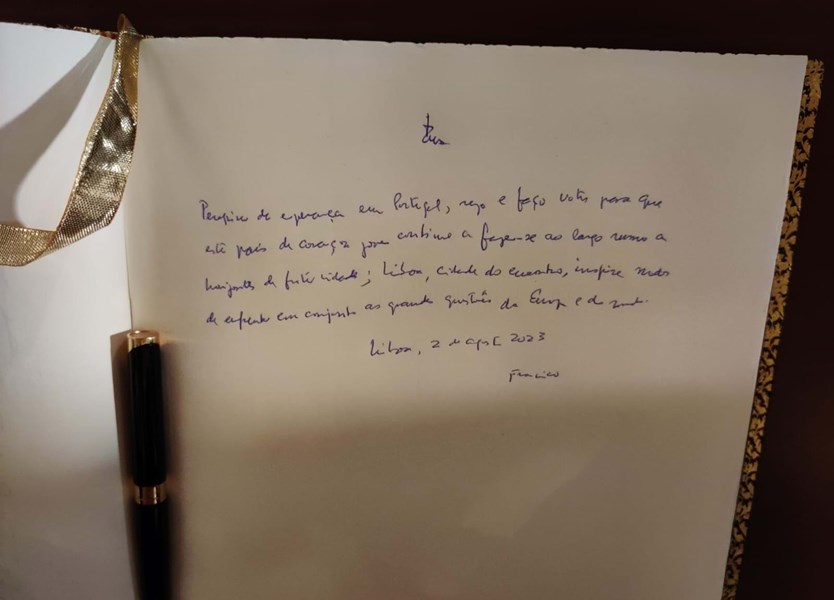 Peregrino de esperança em Portugal, rezo e faço votos para que
este país de coração jovem continue a fazer-se ao largo rumo a
horizontes de fraternidade; Lisboa, cidade do encontro, inspire modos
de enfrentar em conjunto as grandes questões da Europa e do mundo.
Lisboa, 2 de agosto 2023
Francisco